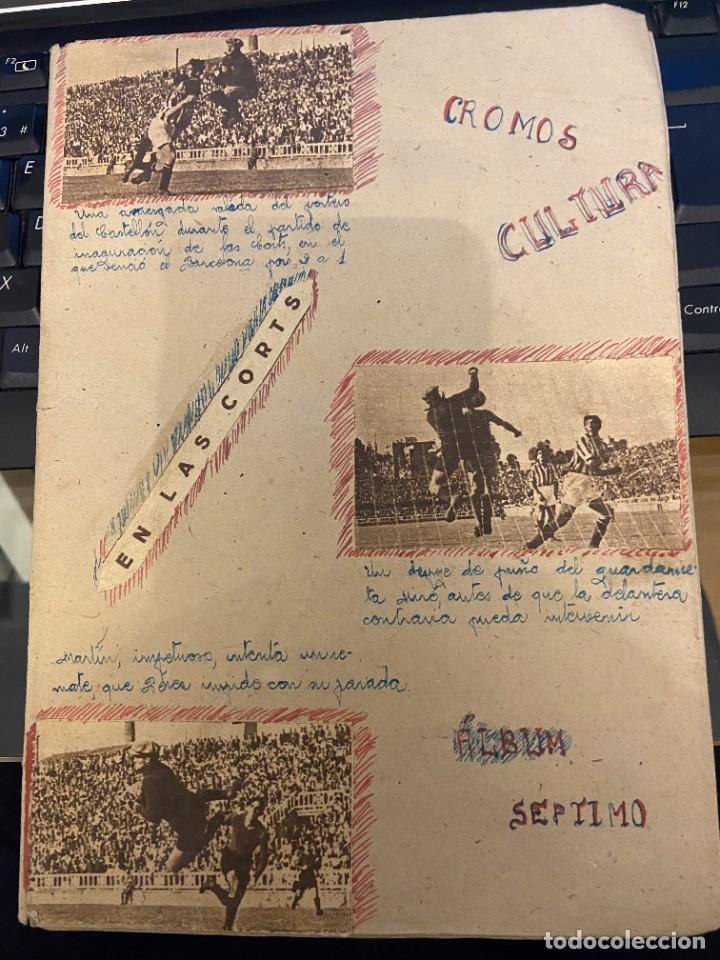 CROMOS
CULTURA
Una arriesgada salida del portero
del Castellón durante el partido de
inauguración de las Corts, en el
que venció el Barcelona por a 1
EN LAS CORTS
Un despeje de puño del guardame-
ta Miró, antes de que la delantera
contraria pueda intervenir
Martín, impetuoso, intenta un re-
mate, que Pérez impide con su parada
ÁLBUM
SÉPTIMO
F2
3 #
E
X
Alt
F12
Contr
todocoleccion
todocoleccion.net